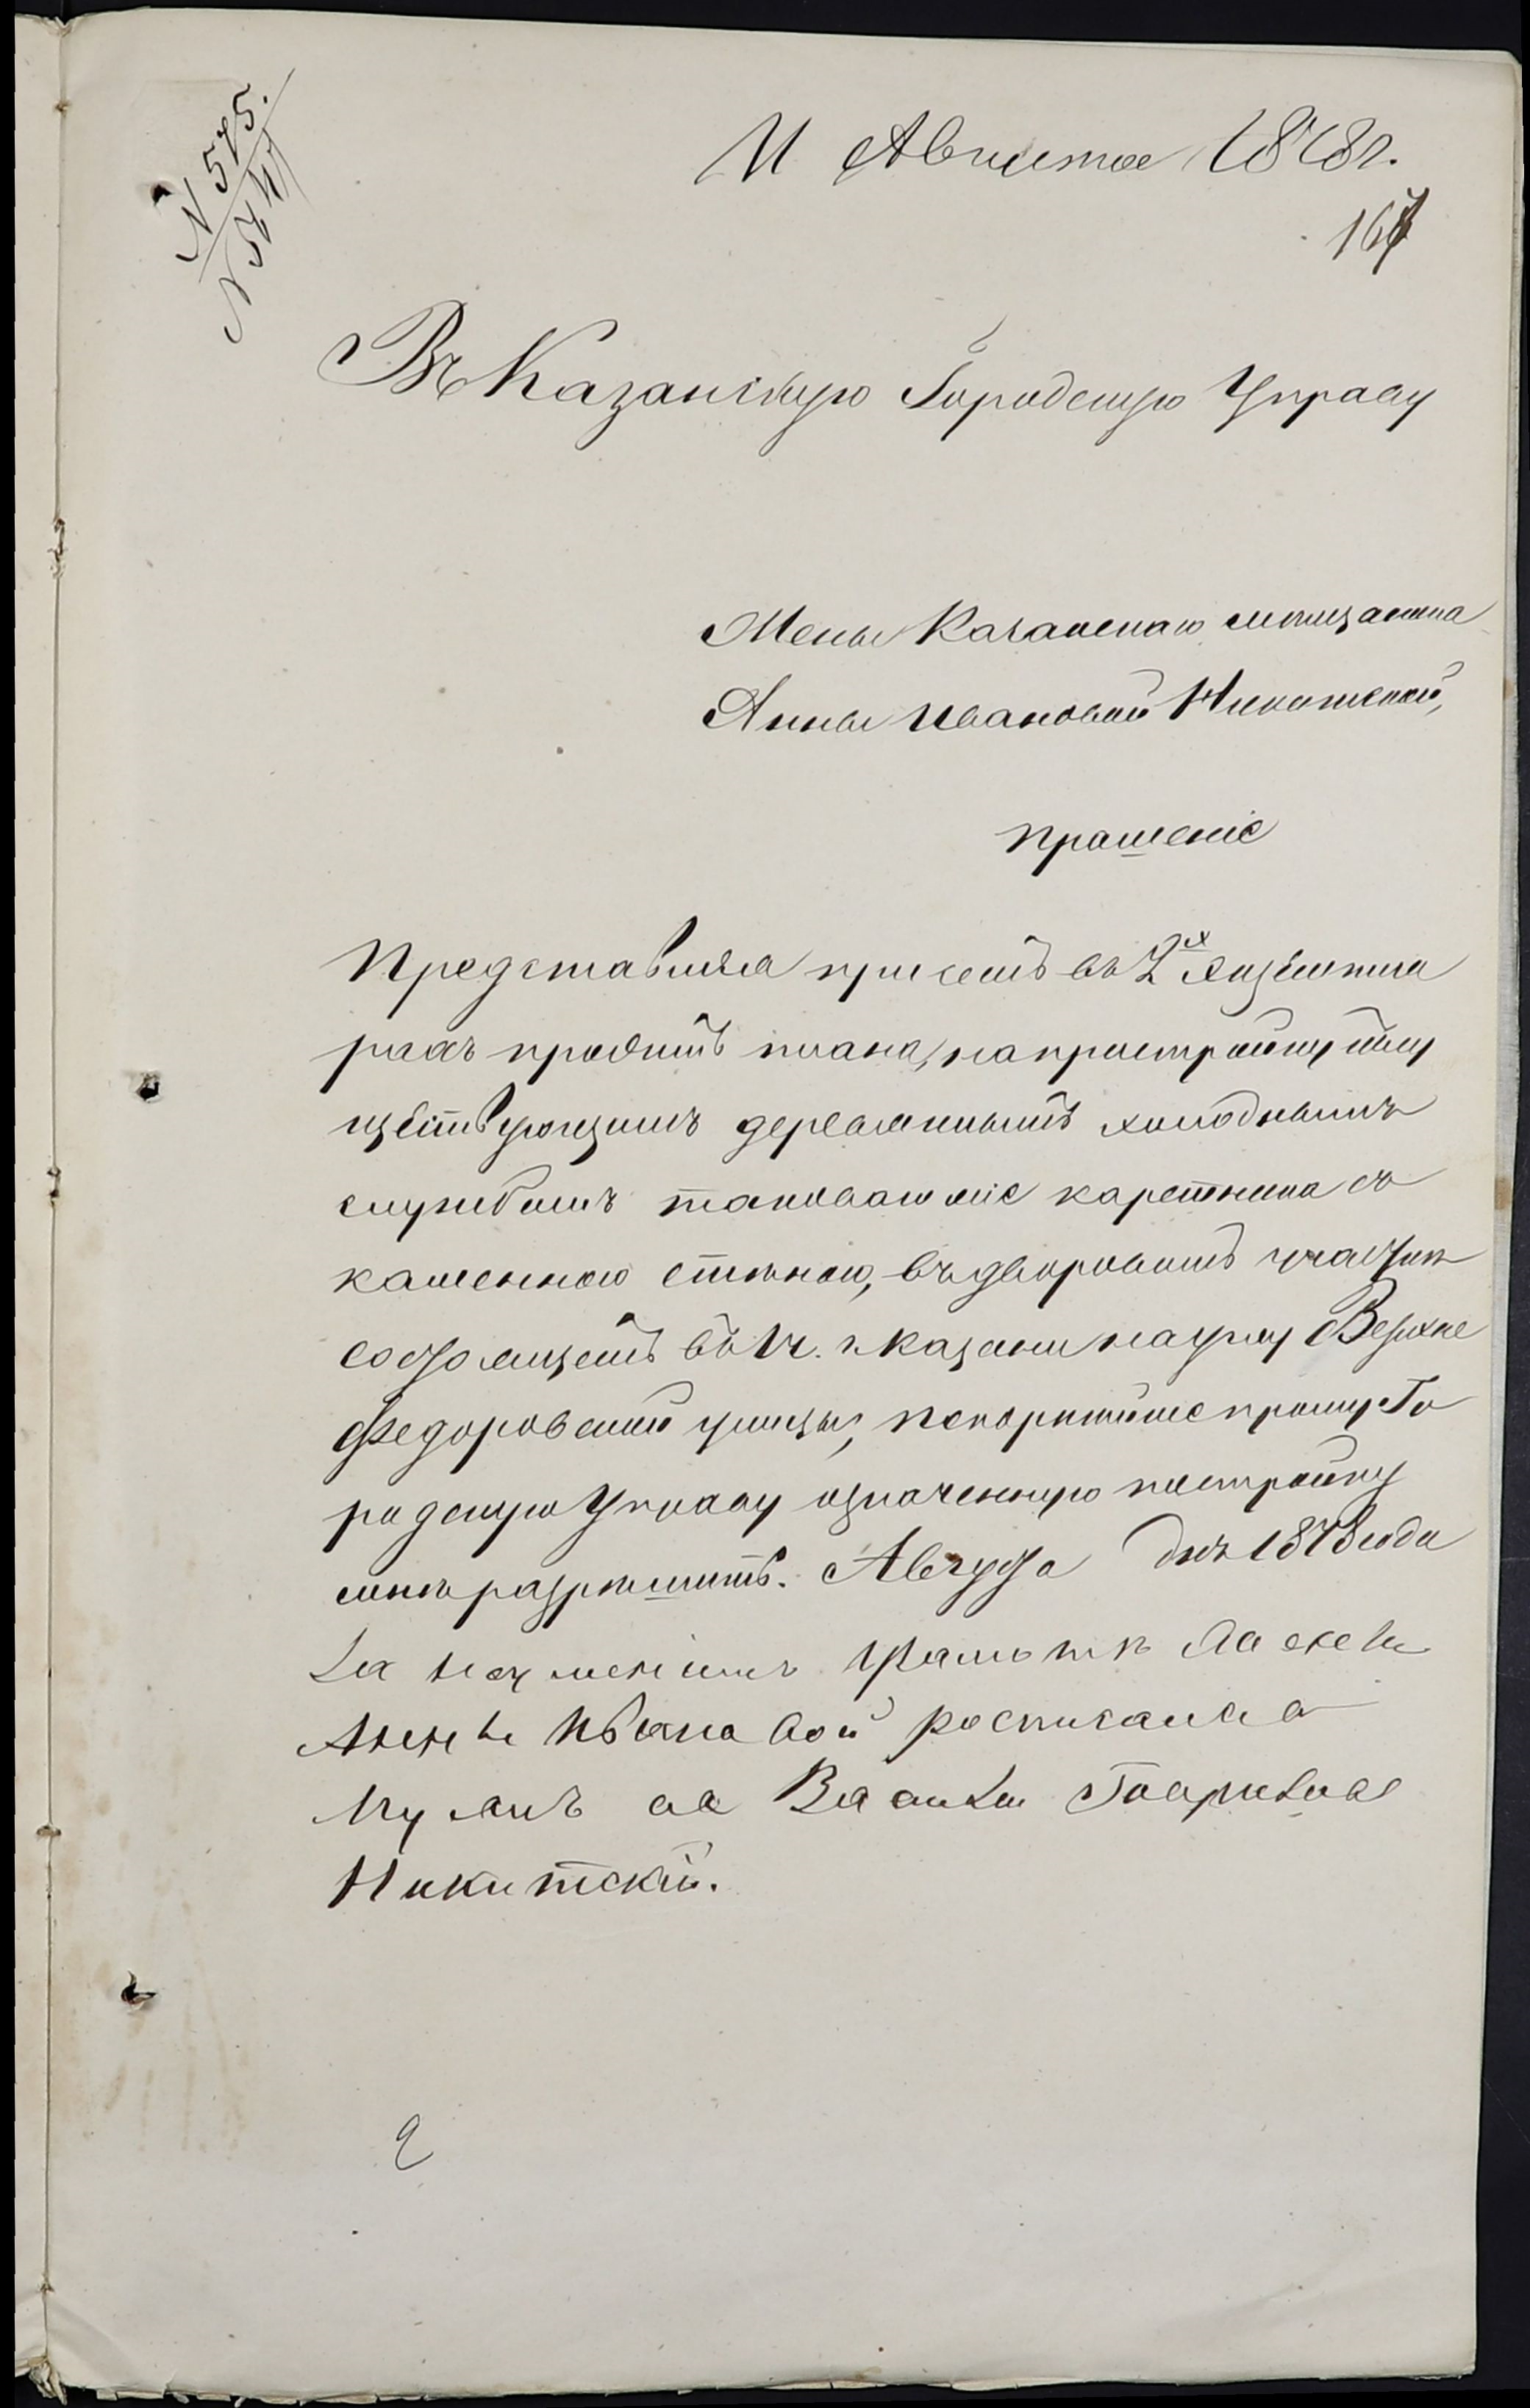 N 575.
N 5641
11 Августа 1878 г.
167
Въ Казанскую Городскую Управу
Жены Казанскаго мѣщанина
Анны Ивановой Никитской,
прошеніе
Представляя при семъ въ 2х экземпля
рахъ проэктъ плана, на пристройку къ су
ществующимъ деревяннымъ холоднымъ
службамъ таковаго же каретника съ
каменною стѣною, въ дворовомъ участкѣ
состоящемъ въ 1 ч. г. Казани на углу Верхне
Федоровской улицы, покорнѣйше прошу Го
родскую Управу означенную постройку
мнѣ разрѣшить. Августа днѣ 1878 года
За неумѣніемъ грамотѣ
Анны Ивановой росписался
мужъ ея Гаврилова
Никитскій.
2